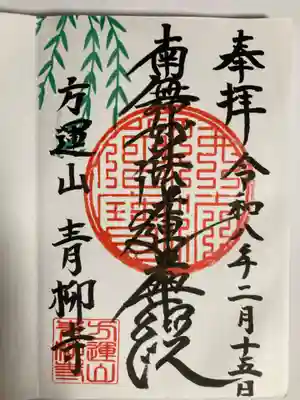 奉拝 令和八年二月十五日
南無妙法蓮華経
方運山 青柳寺
方運山
青柳寺